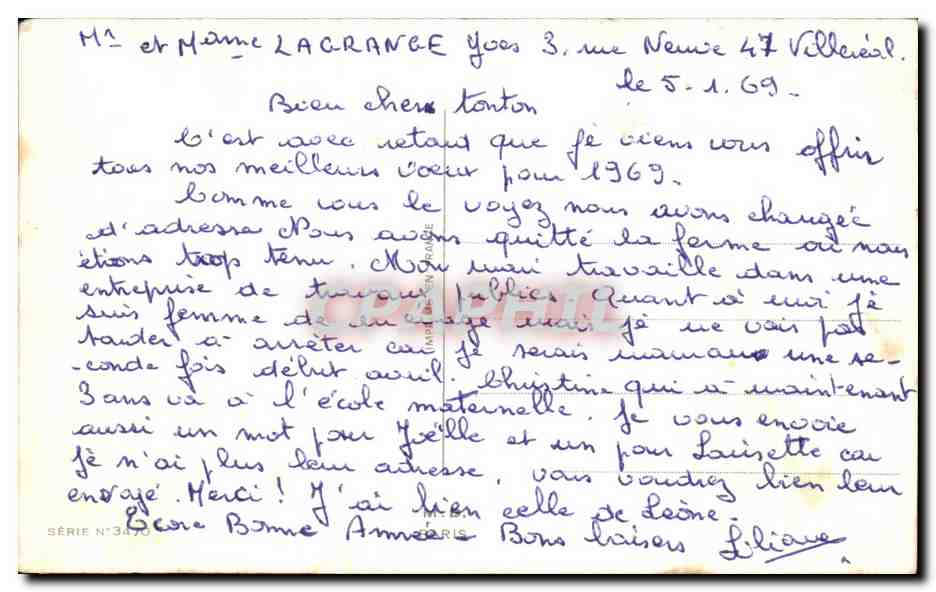 Mr et Mame LAGRANGE Yves 3, rue Neuve 47 Villeréal.
le 5.1.69.
Bien cher tonton
C'est avec retard que je viens vous offrir
tous nos meilleurs voeux pour 1969.
Comme vous le voyez nous avons changée
d'adresse Nous avons quitté la ferme où nous
étions trop tenu. Mon mari travaille dans une
entreprise de travaux publics Quant à moi je
suis femme de ménage mais je ne vais pas
tarder à arrêter car je serais maman une se-
-conde fois début avril. Christine qui a maintenant
3 ans va à l'école maternelle. Je vous envoie
aussi un mot pour Joëlle et un pour Louisette car
je n'ai plus leur adresse, vous voudrez bien leur
envoyé. Merci! J'ai bien celle de Léone.
Encore Bonne Année Bons baisers Liliane
SÉRIE N° 3470
PARIS
IMPRIMÉ EN FRANCE
CPAPHIL